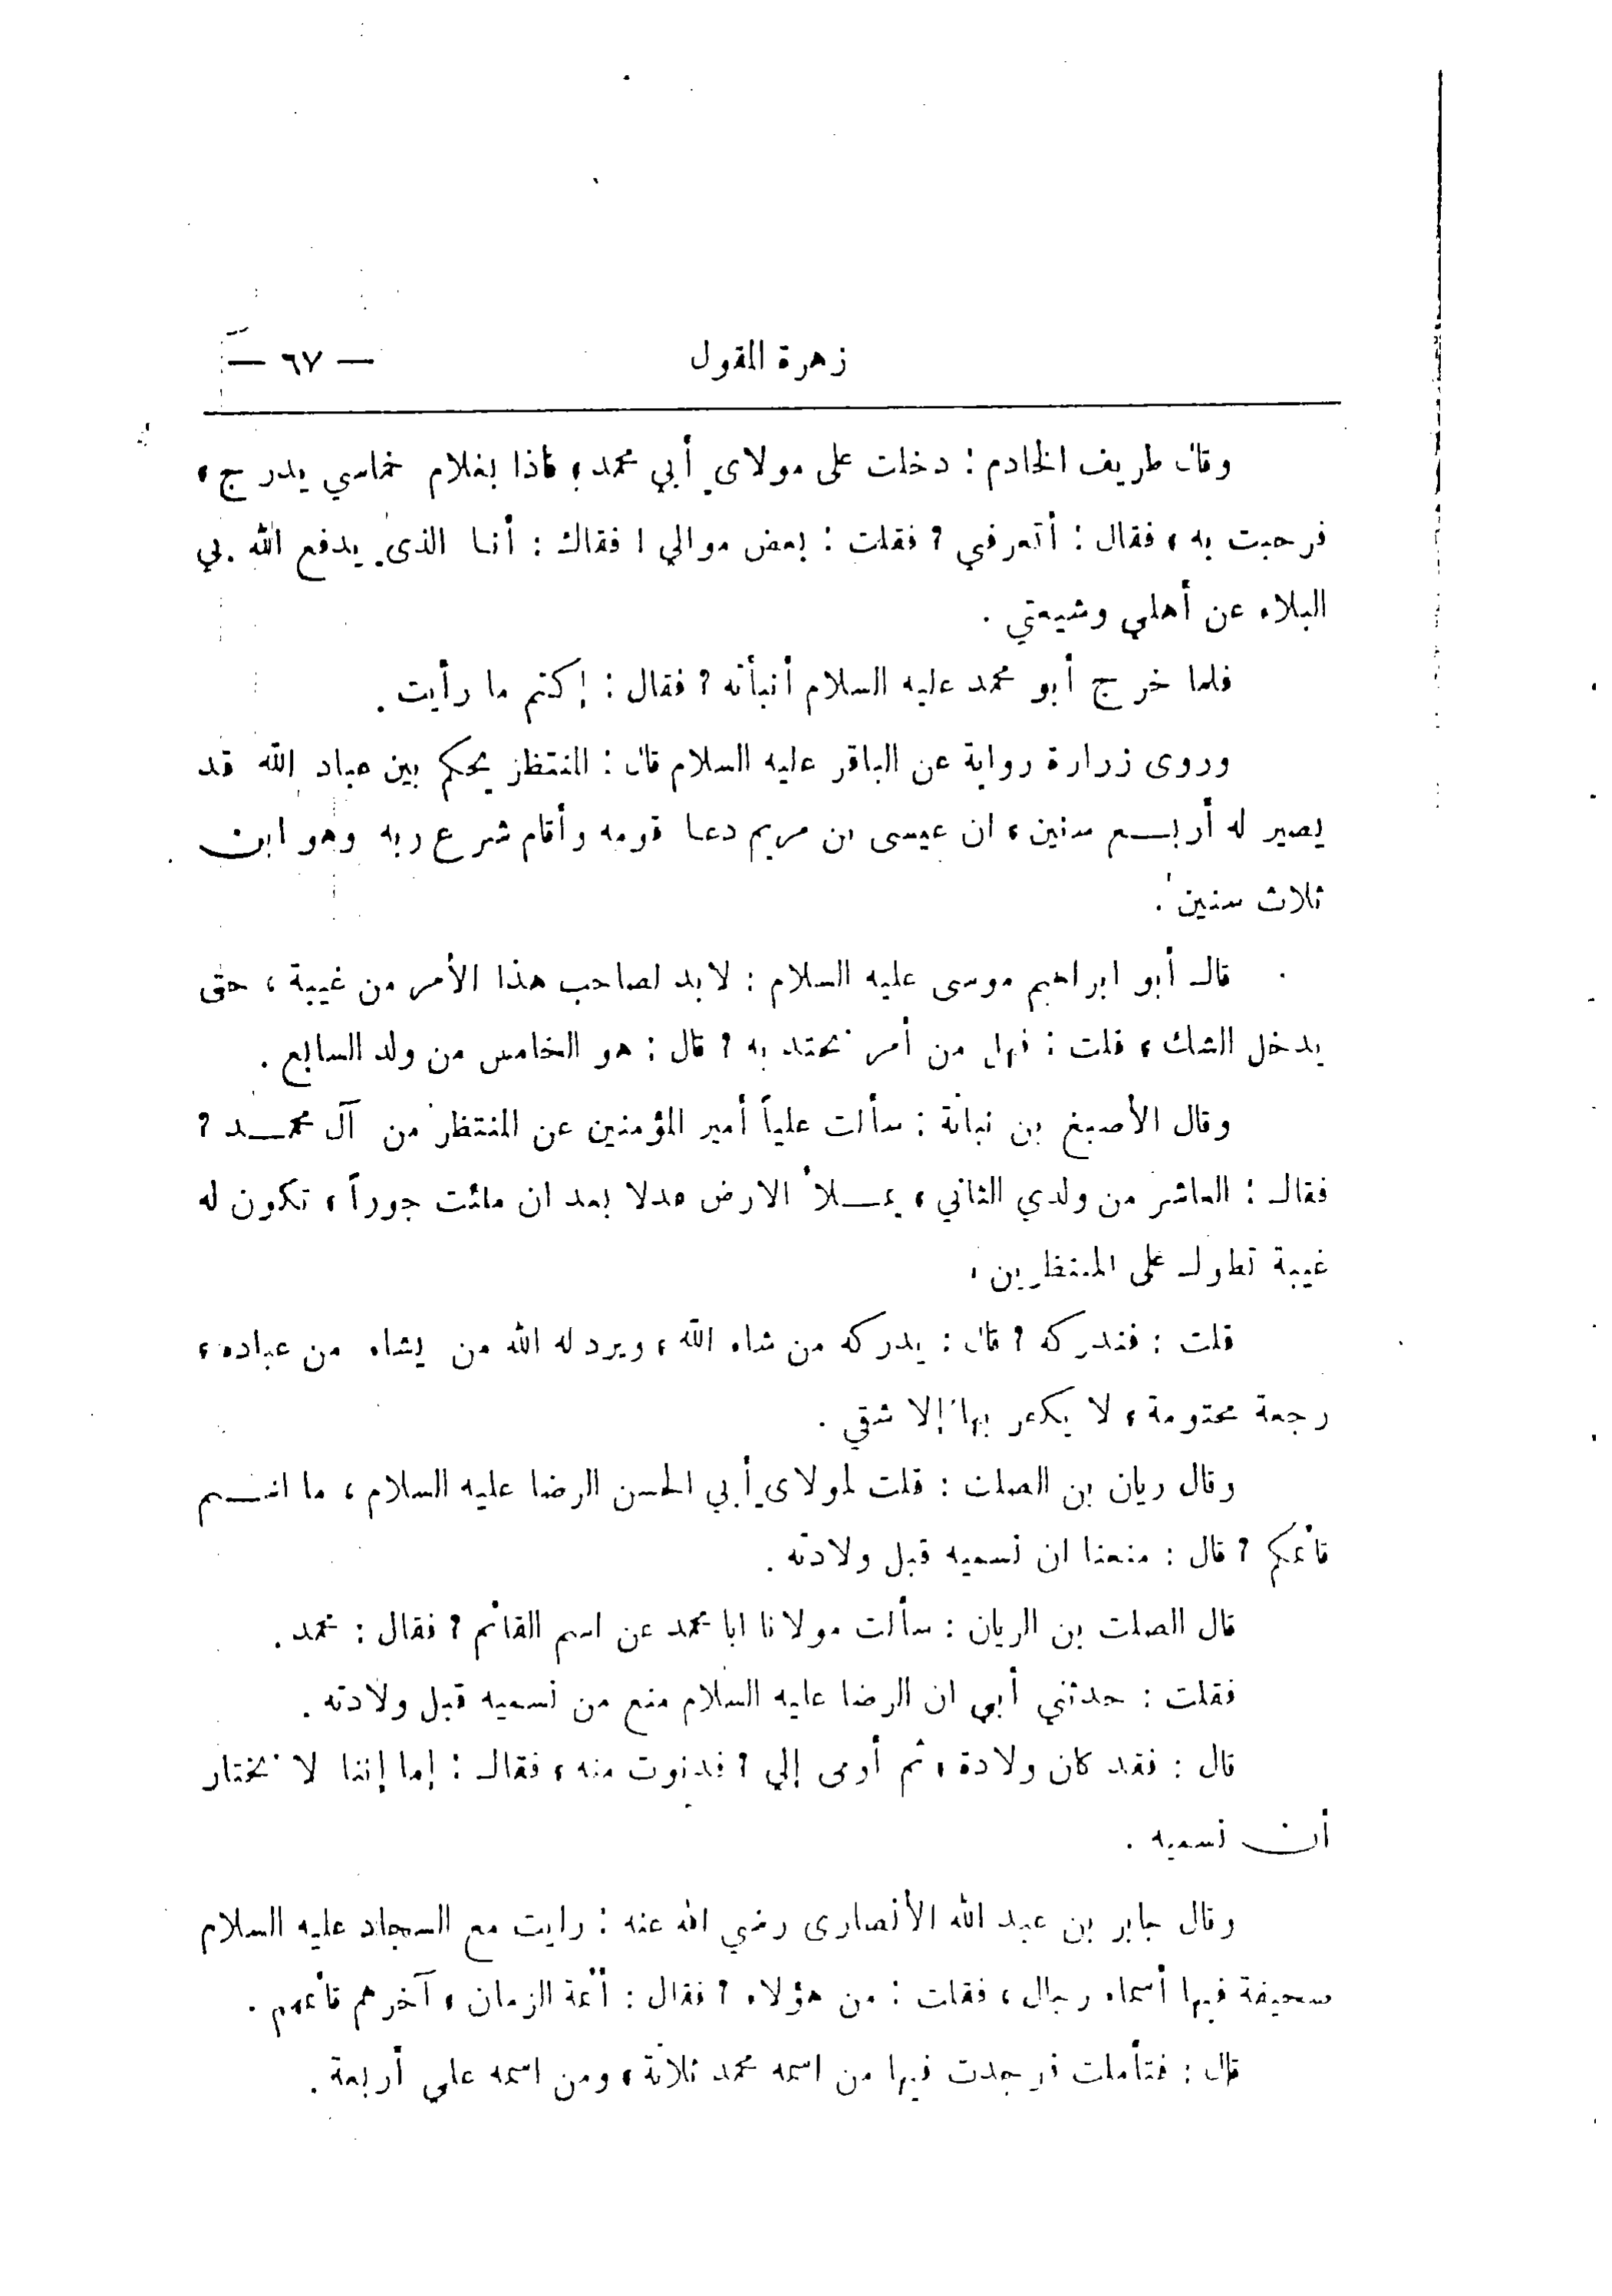 زهرة المقول — ٦٧ —
وقال طريف الخادم : دخلت على مولاي أبي محمد ، فاذا بغلام خماسي يدرج ،
فرحبت به ، فقال : أتعرفني ؟ فقلت : بعض موالي ! فقال : أنا الذي يدفع الله بي
البلاء عن أهلي وشيعتي .
فلما خرج أبو محمد عليه السلام أنبأته ؟ فقال : إكتم ما رأيت .
وروى زرارة رواية عن الباقر عليه السلام قال : المنتظر يحكم بين عباد الله قد
يصير له أربع سنين ، ان عيسى بن مريم دعا قومه وأقام شرع ربه وهو ابن
ثلاث سنين .
قال أبو ابراهيم موسى عليه السلام : لابد لصاحب هذا الأمر من غيبة ، حتى
يدخل الشك ، قلت : فهل من أمر نحتد به ؟ قال : هو الخامس من ولد السابع .
وقال الأصبغ بن نباتة : سألت علياً أمير المؤمنين عن المنتظر من آل محمد ؟
فقال : العاشر من ولدي الثاني ، يملأ الارض عدلا بعد ان ملئت جوراً ، تكون له
غيبة تطول على المنتظرين ،
قلت : فندركه ؟ قال : يدركه من شاء الله ، ويرد له الله من يشاء من عباده ،
رجعة محتومة ، لا يكفر بها إلا شقي .
وقال ريان بن الصلت : قلت لمولاي أبي الحسن الرضا عليه السلام ، ما اسم
قائمكم ؟ قال : منعنا ان نسميه قبل ولادته .
قال الصلت بن الريان : سألت مولانا ابا محمد عن اسم القائم ؟ فقال : محمد .
فقلت : حدثني أبي ان الرضا عليه السلام منع من تسميه قبل ولادته .
قال : فقد كان ولادة ، ثم أومى إلي ؟ فدنوت منه ، فقال : إما إننا لا نختار
أن نسميه .
وقال جابر بن عبد الله الأنصارى رضي الله عنه : رايت مع السجاد عليه السلام
صحيفة فيها أسماء رجال ، فقلت : من هؤلاء ؟ فقال : أئمة الزمان ، آخرهم قائمهم .
قال : فتأملت فوجدت فيها من اسمه محمد ثلاثة ، ومن اسمه علي أربعة .